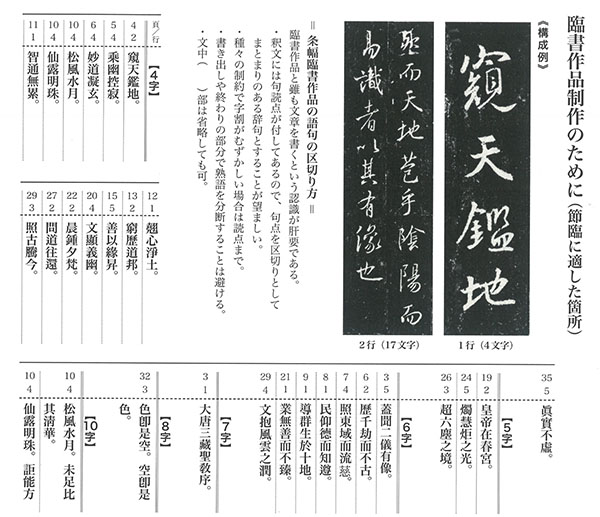 臨書作品制作のために（節臨に適した箇所）
《構成例》
窺天鑑地
1行（4文字）
然而天地苞乎陰陽而
易識者以其有像也
2行（17文字）
＝条幅臨書作品の語句の区切り方＝
臨書作品と雖も文章を書くという認識が肝要である。
・釈文には句読点が付してあるので、句点を区切りとして
まとまりのある辞句とすることが望ましい。
・種々の制約で字割がむずかしい場合は読点まで。
・書き出しや終わりの部分で熟語を分断することは避ける。
・文中（　）部は省略しても可。
頁／行
【4字】
4 2 窺天鑑地。
5 4 乘幽控寂。
6 4 妙道凝玄。
10 4 松風水月。
10 4 仙露明珠。
11 1 智通無累。
12 1 翹心淨土。
13 2 窮歷道邦。
15 5 善以緣昇。
20 4 文顯義幽。
22 2 晨鍾夕梵。
27 2 問道往還。
29 3 照古騰今。
35 5 眞實不虛。
【5字】
19 2 皇帝在春宮。
24 5 燭慧炬之光。
26 3 超六塵之境。
【6字】
3 5 蓋聞二儀有像。
6 2 歷千劫而不古。
7 4 照東域而流慈。
8 1 民仰德而知遵。
9 1 導群生於十地。
21 1 業無善而不臻。
29 4 文抱風雲之潤。
【7字】
3 1 大唐三藏聖敎序。
【8字】
32 3 色卽是空。空卽是
色。
【10字】
10 4 松風水月。未足比
其淸華。
10 4 仙露明珠。詎能方